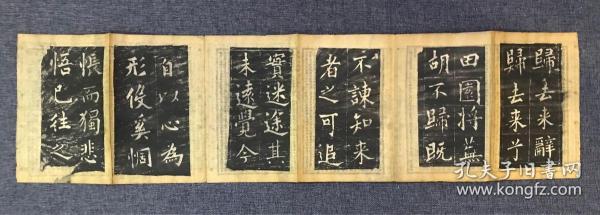 歸去来辭
歸去来兮
田園將蕪
胡不歸既
不諫知来
者之可追
實迷途其
未遠覺今
自以心為
形役奚惆
悵而獨悲
悟已往之
孔夫子旧书网
www.kongfz.com